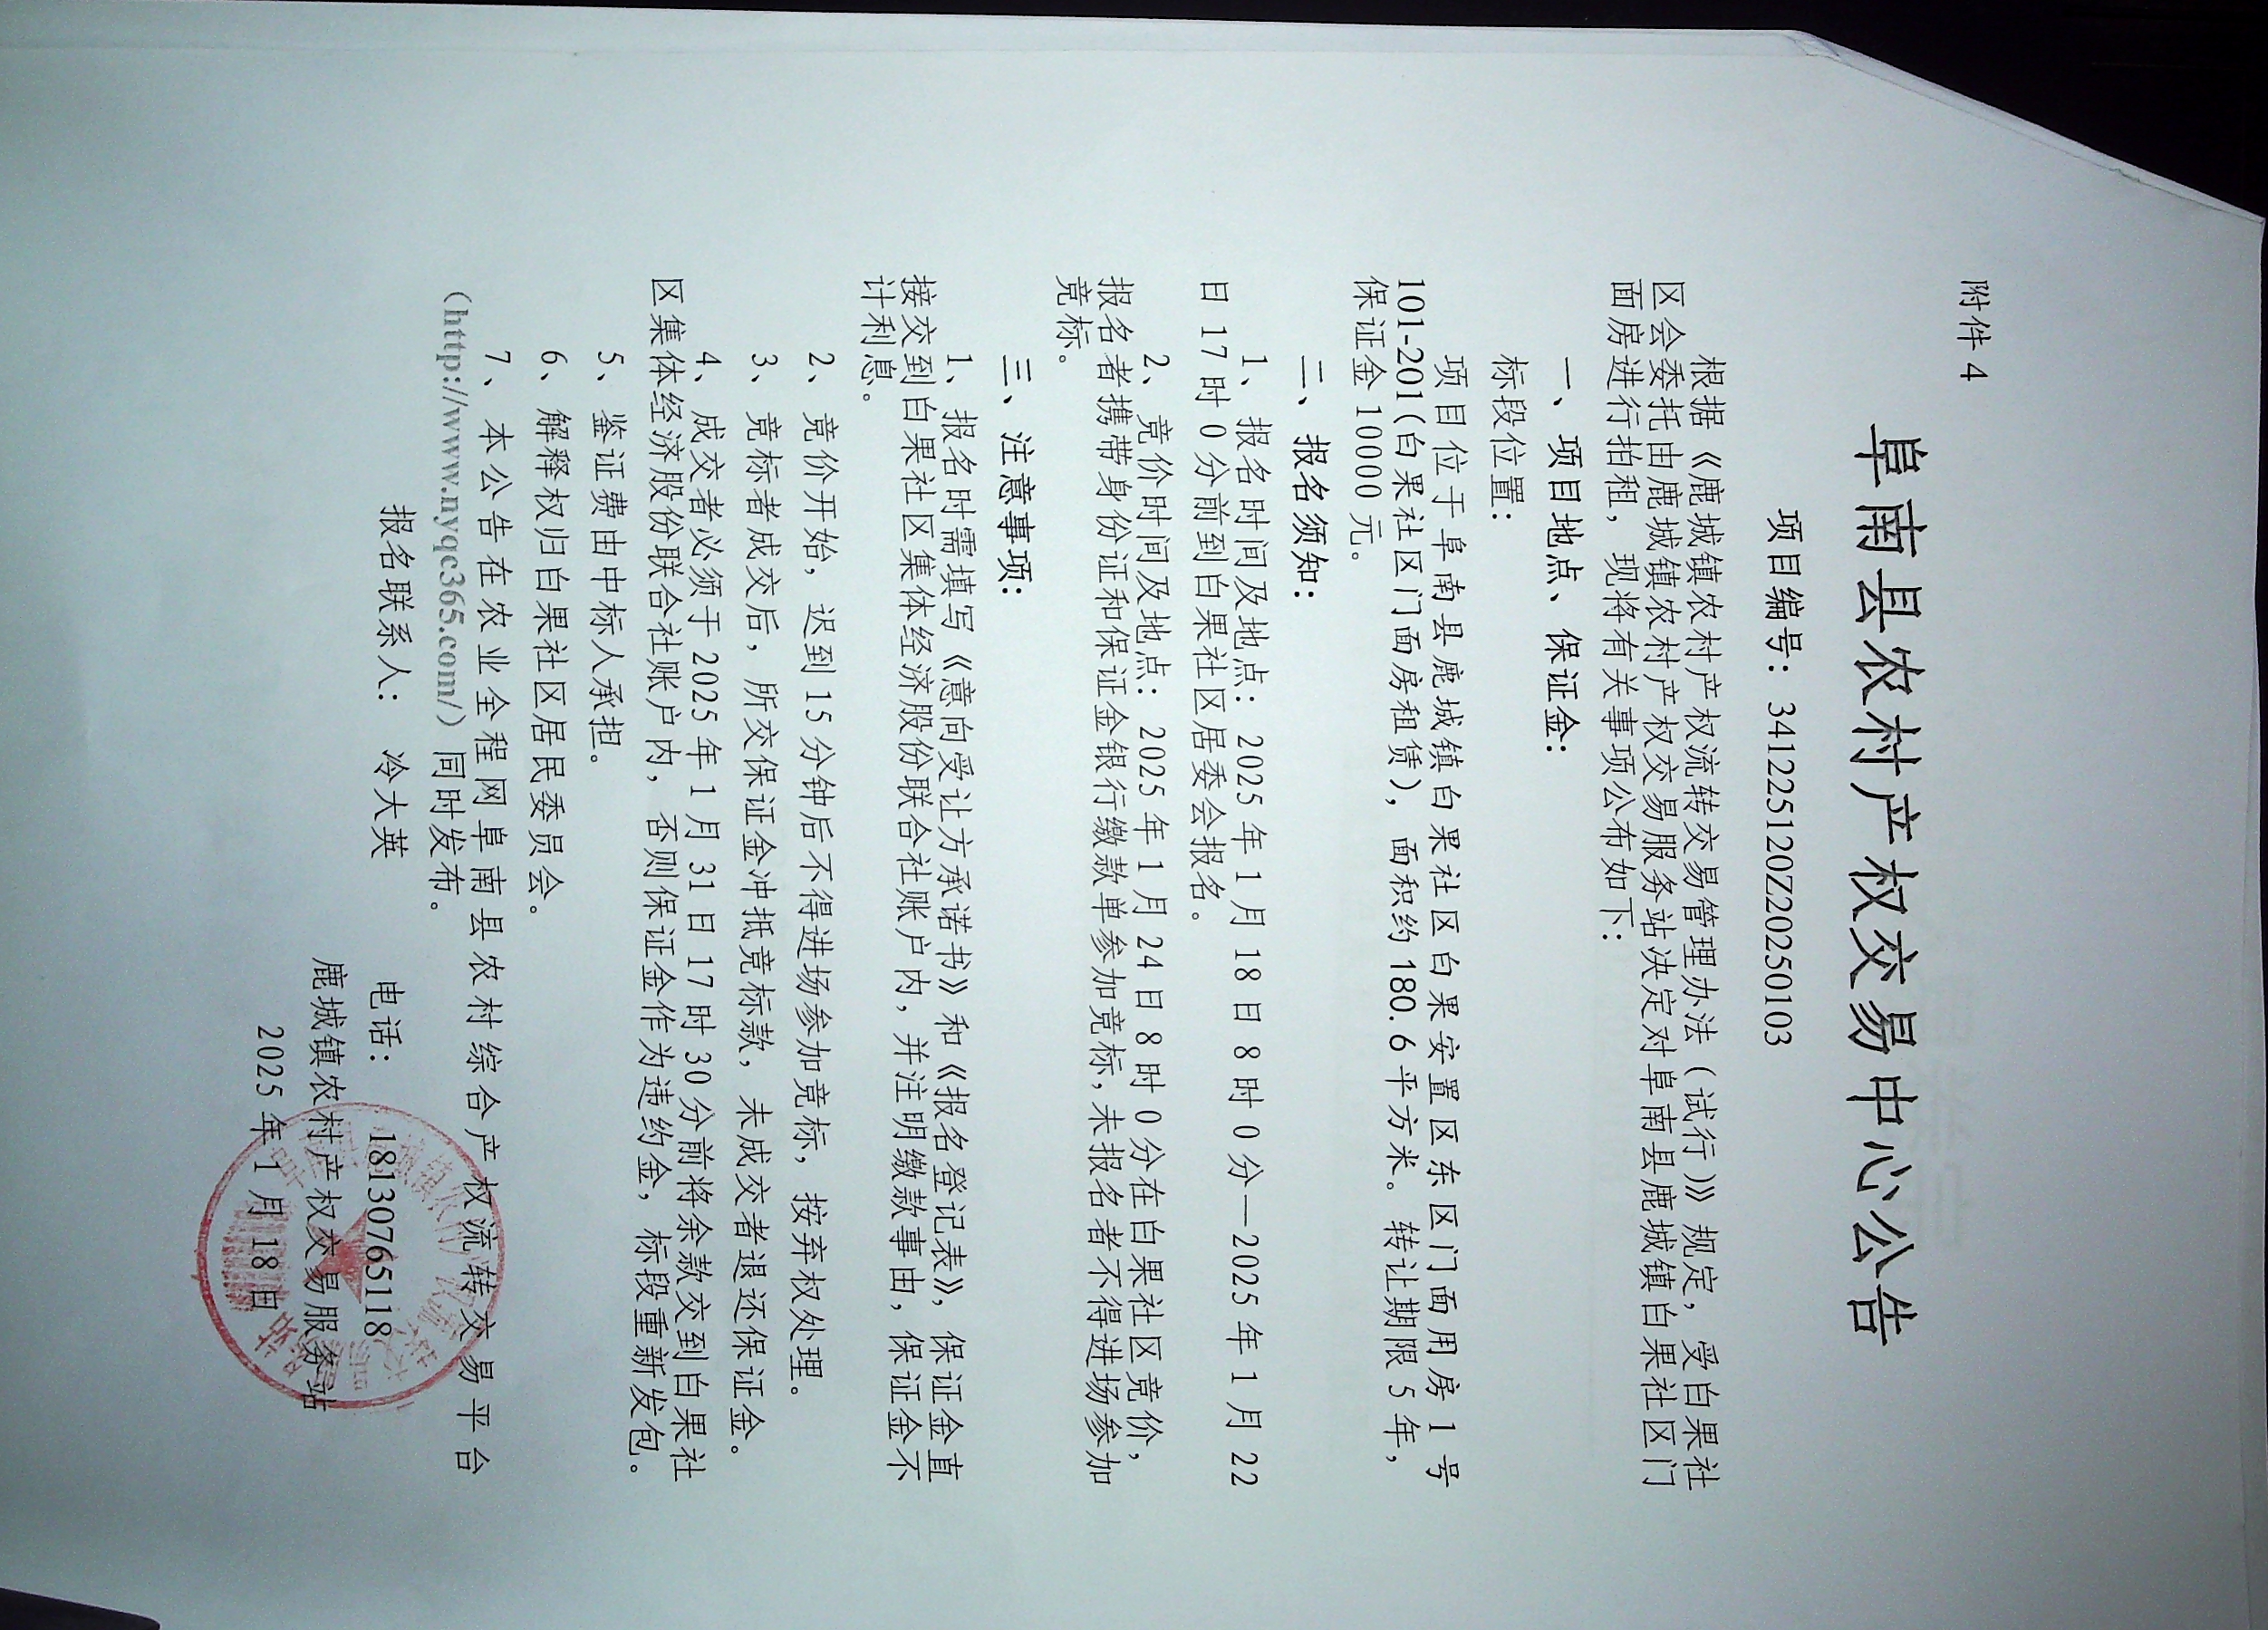 附件 4
阜南县农村产权交易中心公告
项目编号：341225120Z20250103
根据《鹿城镇农村产权流转交易管理办法（试行）》规定，受白果社
区会委托由鹿城镇农村产权交易服务站决定对阜南县鹿城镇白果社区门
面房进行拍租，现将有关事项公布如下：
一、项目地点、保证金：
标段位置：
项目位于阜南县鹿城镇白果社区白果安置区东区门面用房 1 号
101-201(白果社区门面房租赁)，面积约 180.6 平方米。转让期限 5 年，
保证金 10000 元。
二、报名须知：
1、报名时间及地点：2025 年 1 月 18 日 8 时 0 分—2025 年 1 月 22
日 17 时 0 分前到白果社区居委会报名。
2、竞价时间及地点：2025 年 1 月 24 日 8 时 0 分在白果社区竞价，
报名者携带身份证和保证金银行缴款单参加竞标，未报名者不得进场参加
竞标。
三、注意事项：
1、报名时需填写《意向受让方承诺书》和《报名登记表》，保证金直
接交到白果社区集体经济股份联合社账户内，并注明缴款事由，保证金不
计利息。
2、竞价开始，迟到 15 分钟后不得进场参加竞标，按弃权处理。
3、竞标者成交后，所交保证金冲抵竞标款，未成交者退还保证金。
4、成交者必须于 2025 年 1 月 31 日 17 时 30 分前将余款交到白果社
区集体经济股份联合社账户内，否则保证金作为违约金，标段重新发包。
5、鉴证费由中标人承担。
6、解释权归白果社区居民委员会。
7、本公告在农业全程网阜南县农村综合产权流转交易平台
（http://www.nyqc365.com/）同时发布。
报名联系人：冷大英 电话：18130765118
鹿城镇农村产权交易服务站
2025 年 1 月 18 日